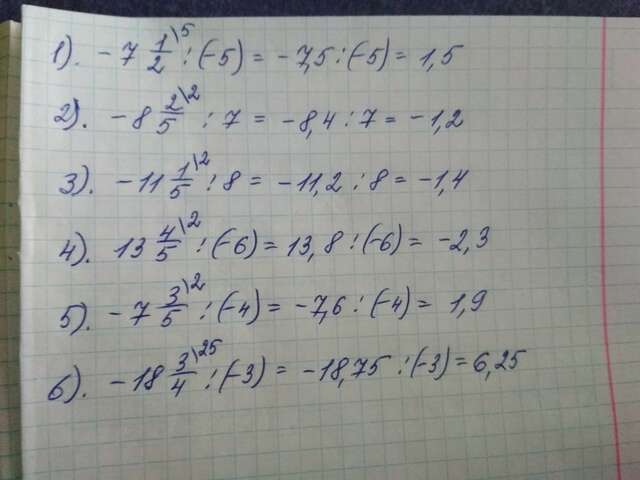 1). -7 1/2 \5 : (-5) = -7,5 : (-5) = 1,5
2). -8 2/5 \2 : 7 = -8,4 : 7 = -1,2
3). -11 1/5 \2 : 8 = -11,2 : 8 = -1,4
4). 13 4/5 \2 : (-6) = 13,8 : (-6) = -2,3
5). -7 3/5 \2 : (-4) = -7,6 : (-4) = 1,9
6). -18 3/4 \25 : (-3) = -18,75 : (-3) = 6,25